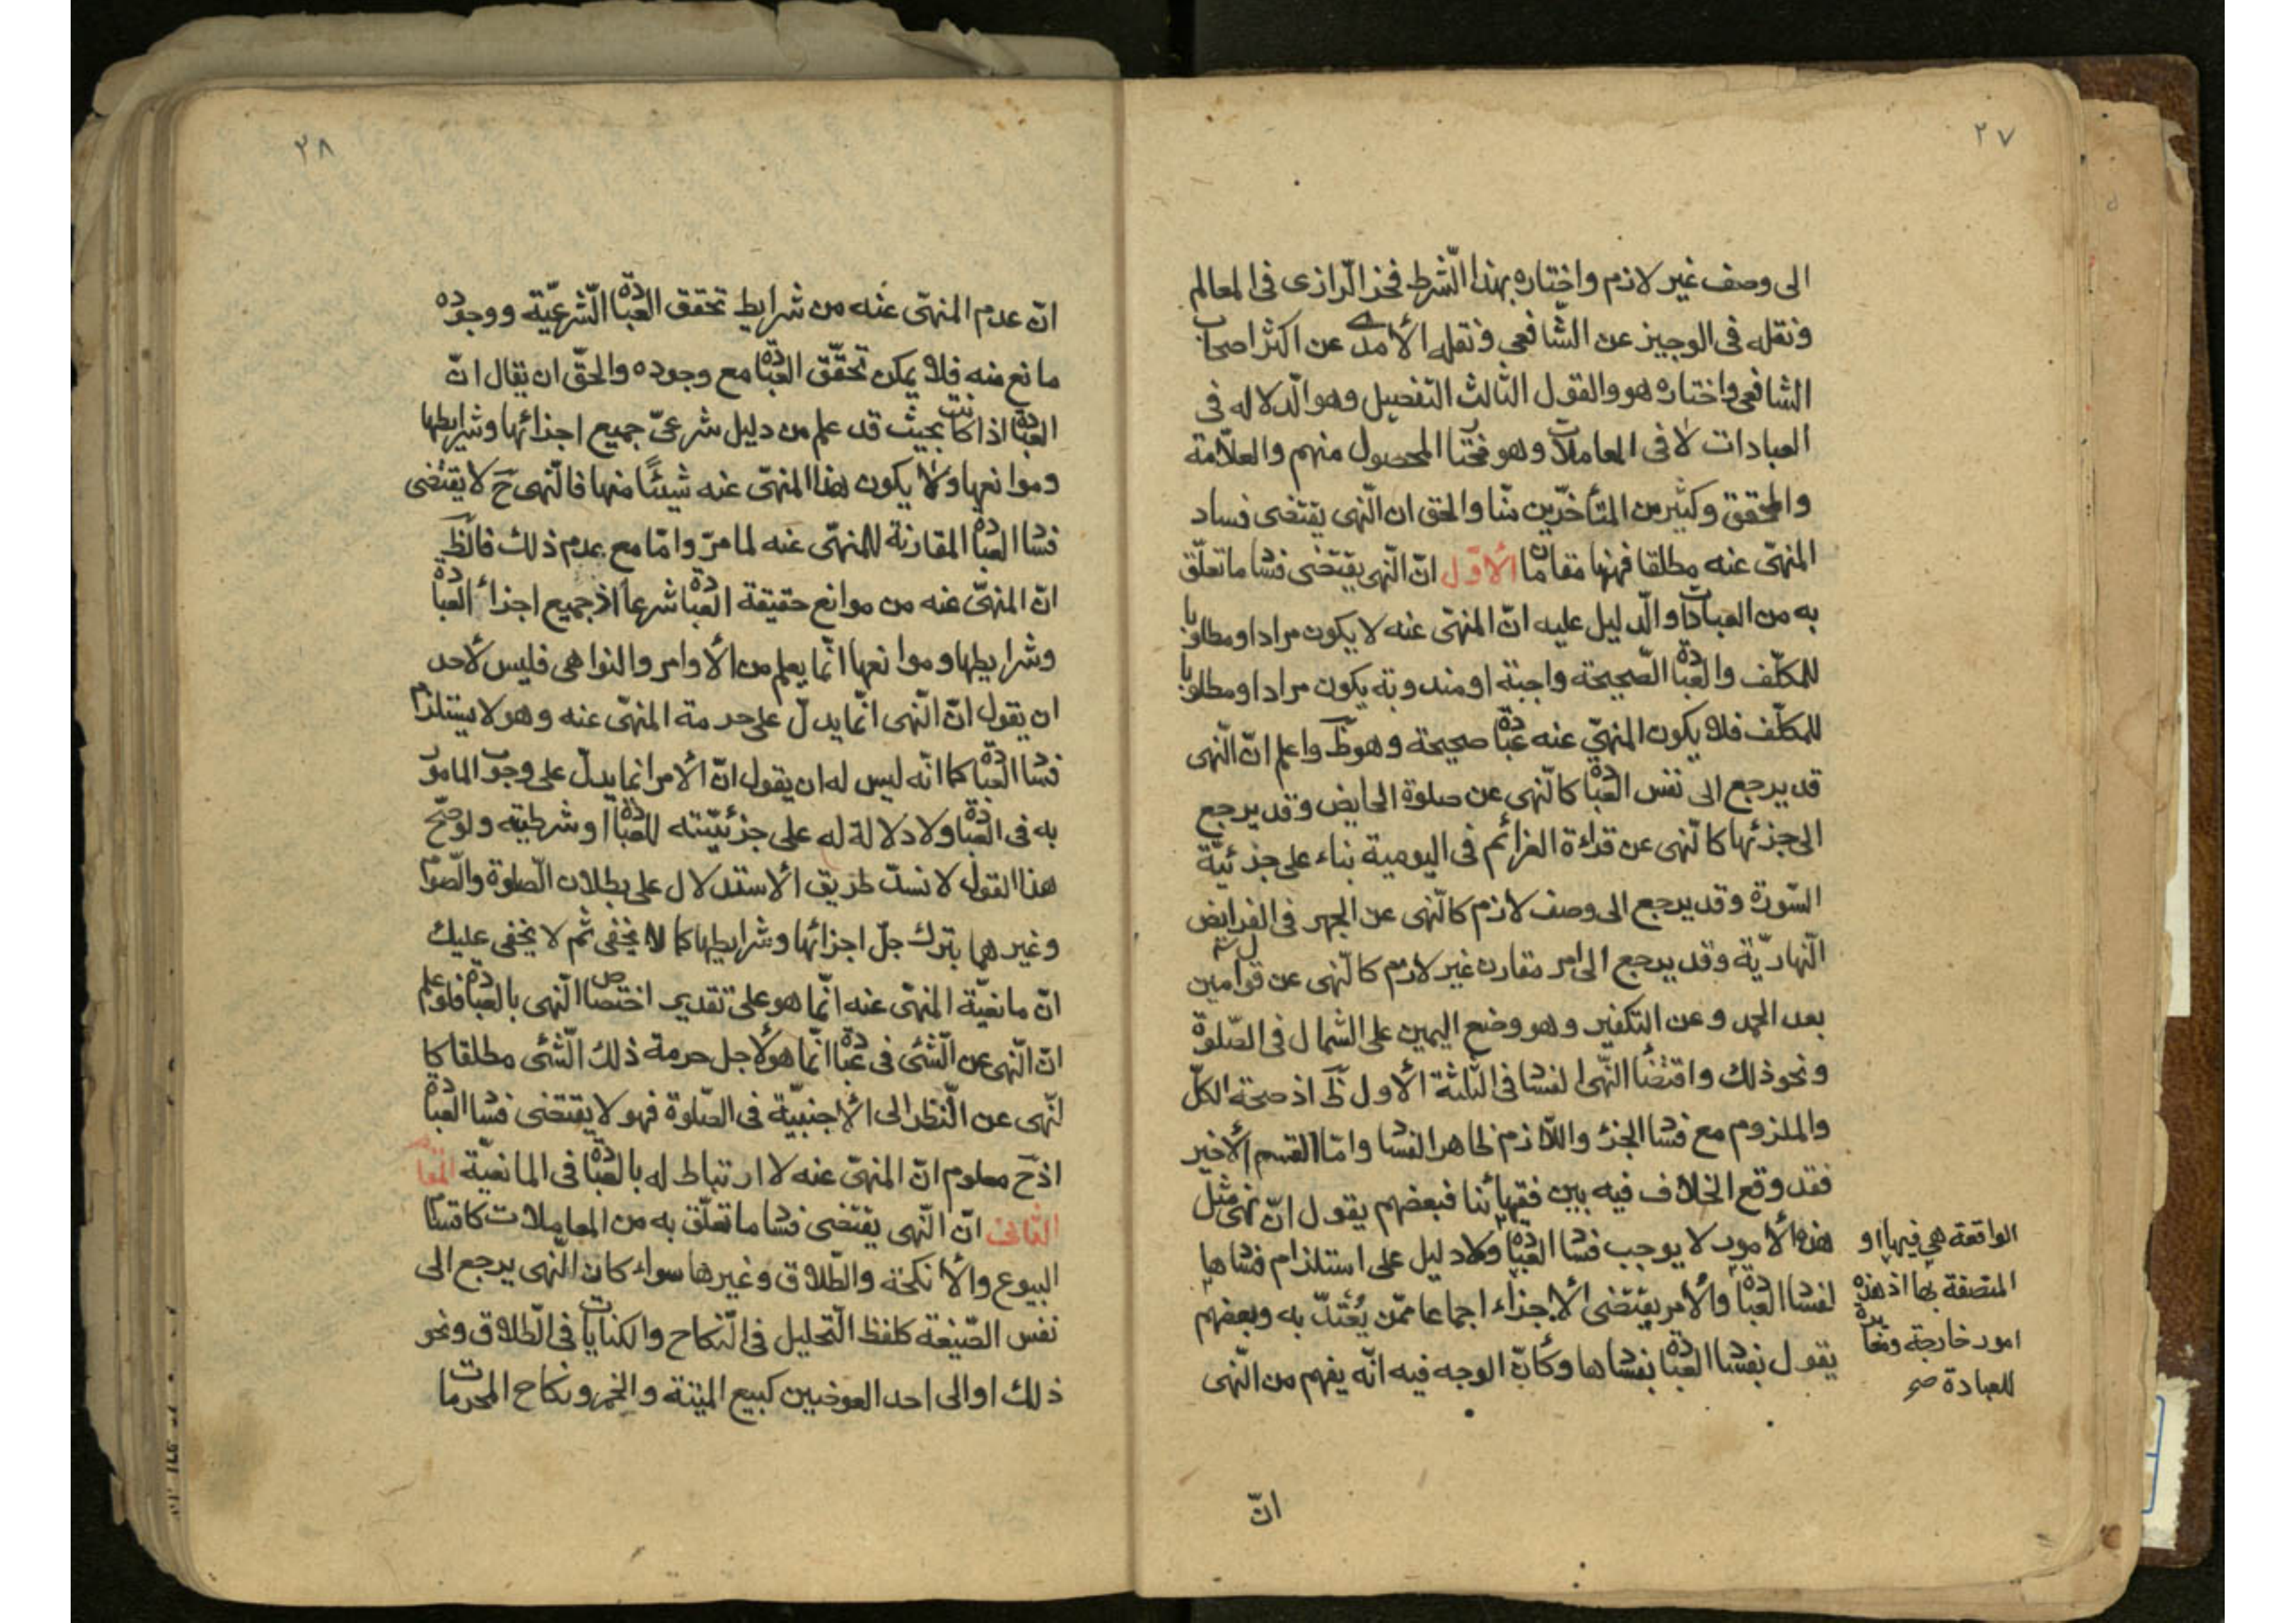 ٢٧
الى وصف غير لازم واختاره بهذا الشرط فخر الرازى فى المعالم
ونقله فى الوجيز عن الشافعي ونقله الأمدى عن اكثر اصحاب
الشافعي واختاره هو والقول الثالث التفصيل وهو الدلاله فى
العبادات لا فى المعاملات وهو مختار المحصول منهم والعلامة
والمحقق وكثير من المتأخرين منا والحق ان النهى يقتضى فساد
المنهى عنه مطلقا فههنا مقامان الأول ان النهى يقتضى فساد ما تعلق
به من العبادات والدليل عليه ان المنهى عنه لا يكون مرادا ومطلوبا
للمكلف والعبادة الصحيحة واجبة او مندوبة يكون مرادا ومطلوبا
للمكلف فلا يكون المنهي عنه عبادة صحيحة وهو ظ واعلم ان النهى
قد يرجع الى نفس العبادة كالنهى عن صلوة الحايض وقد يرجع
الى جزئها كالنهى عن قراءة العزائم فى اليومية بناء على جزئية
السورة وقد يرجع الى وصف لازم كالنهى عن الجهر فى الفرايض
النهارية وقد يرجع الى امر مقارن غير لازم كالنهى عن قول امين
بعد الحمد وعن التكفير وهو وضع اليمين على الشمال فى الصلوة
ونحو ذلك واقتضاء النهى الفساد فى الثلثة الأول ظ اذ صحة الكل
والملزوم مع فساد الجزء واللازم ظاهر الفساد واما القسم الأخير
فقد وقع الخلاف فيه بين فقهائنا فبعضهم يقول ان نهى مثل
هذه الأمور لا يوجب فساد العبادة ولا دليل على استلزام فسادها
لفساد العبادة والأمر يقتضى الأجزاء اجماعا ممن يعتد به وبعضهم
يقول بفساد العبادة بفسادها وكأن الوجه فيه انه يفهم من النهى
الواقعة هي فيها او
المتصفة بها اذ هذه
امور خارجة ومغايرة
للعبادة صح
ان
٢٨
ان عدم المنهى عنه من شرايط تحقق العبادة الشرعية ووجوده
مانع منه فلا يمكن تحقق العبادة مع وجوده والحق ان يقال ان
العبادة اذا كانت بحيث قد علم من دليل شرعى جميع اجزائها وشرايطها
وموانعها ولا يكون هذا المنهى عنه شيئا منها فالنهى ح لا يقتضى
فساد العبادة المقارنة للمنهى عنه لما مر واما مع عدم ذلك فالظ
ان المنهى عنه من موانع حقيقة العبادة شرعا اذ جميع اجزاء العبادة
وشرايطها وموانعها انما يعلم من الأوامر والنواهى فليس لأحد
ان يقول ان النهى انما يدل على حرمة المنهى عنه وهو لا يستلزم
فساد العبادة كما انه ليس له ان يقول ان الأمر انما يدل على وجوب المامور
به فى العبادة ولا دلالة له على جزئيته للعبادة او شرطيته ولو صح
هذا القول لا نسد طريق الأستدلال على بطلان الصلوة والصوم
وغيرهما بترك جل اجزائها وشرايطها كما لا يخفى ثم لا يخفى عليك
ان مانعية المنهى عنه انما هو على تقدير اختصاص النهى بالعبادة فلو علم
ان النهى عن الشئ فى عبادة انما هو لأجل حرمة ذلك الشئ مطلقا كا
لنهى عن النظر الى الأجنبية فى الصلوة فهو لا يقتضى فساد العبادة
اذ ح معلوم ان المنهى عنه لا ارتباط له بالعبادة فى المانعية المقام
الثانى ان النهى يقتضى فساد ما تعلق به من المعاملات كاقسام
البيوع والأنكحة والطلاق وغيرها سواء كان النهى يرجع الى
نفس الصيغة كلفظ التحليل فى النكاح والكنايات فى الطلاق ونحو
ذلك او الى احد العوضين كبيع الميتة والخمر ونكاح المحرمات